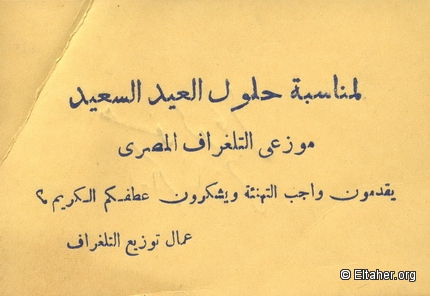 لمناسبة حلول العيد السعيد
موزعى التلغراف المصرى
يقدمون واجب التهنئة ويشكرون عطفكم الكريم ؟
عمال توزيع التلغراف
© Eltaher.org